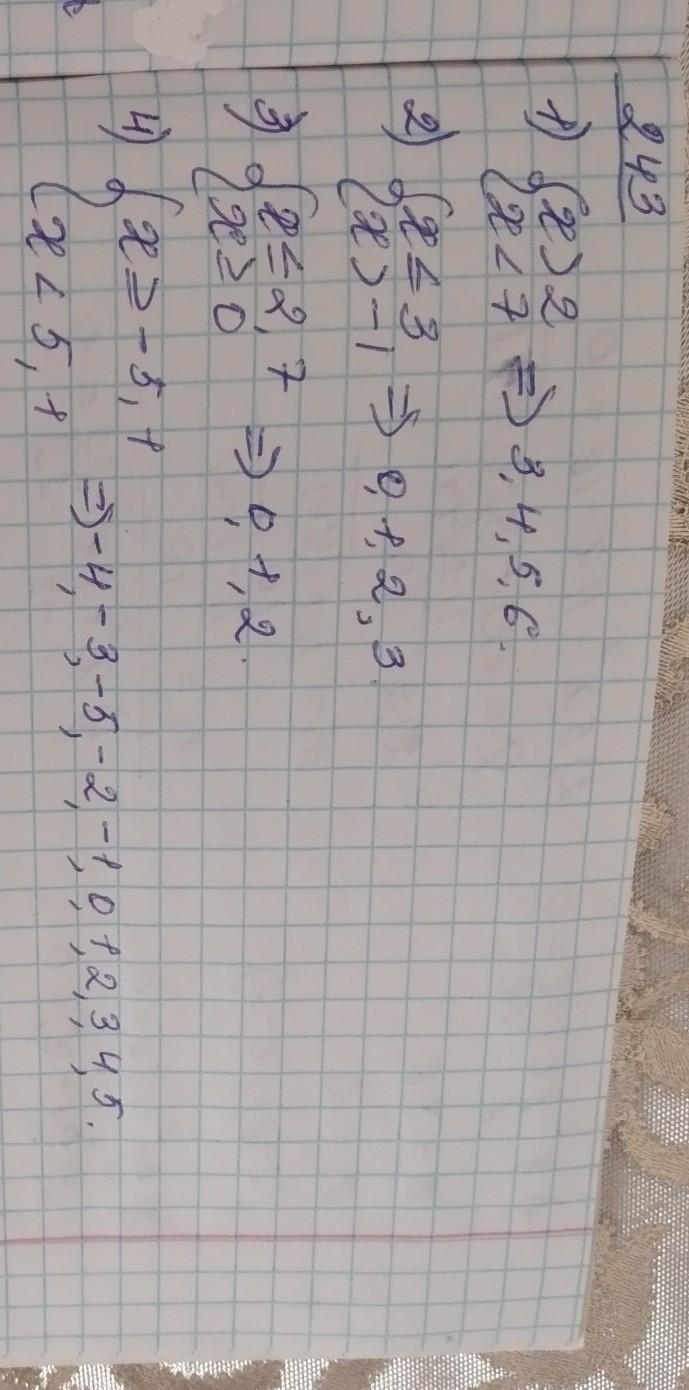 243
1) { x > 2
x < 7 ⇒ 3, 4, 5, 6.
2) { x ≤ 3
x > -1 ⇒ 0, 1, 2, 3.
3) { x ≤ 2,7
x ≥ 0 ⇒ 0, 1, 2.
4) { x ≥ -5,1
⇒ -4, -3, -5, -2, -1, 0, 1, 2, 3, 4, 5.
x < 5,1